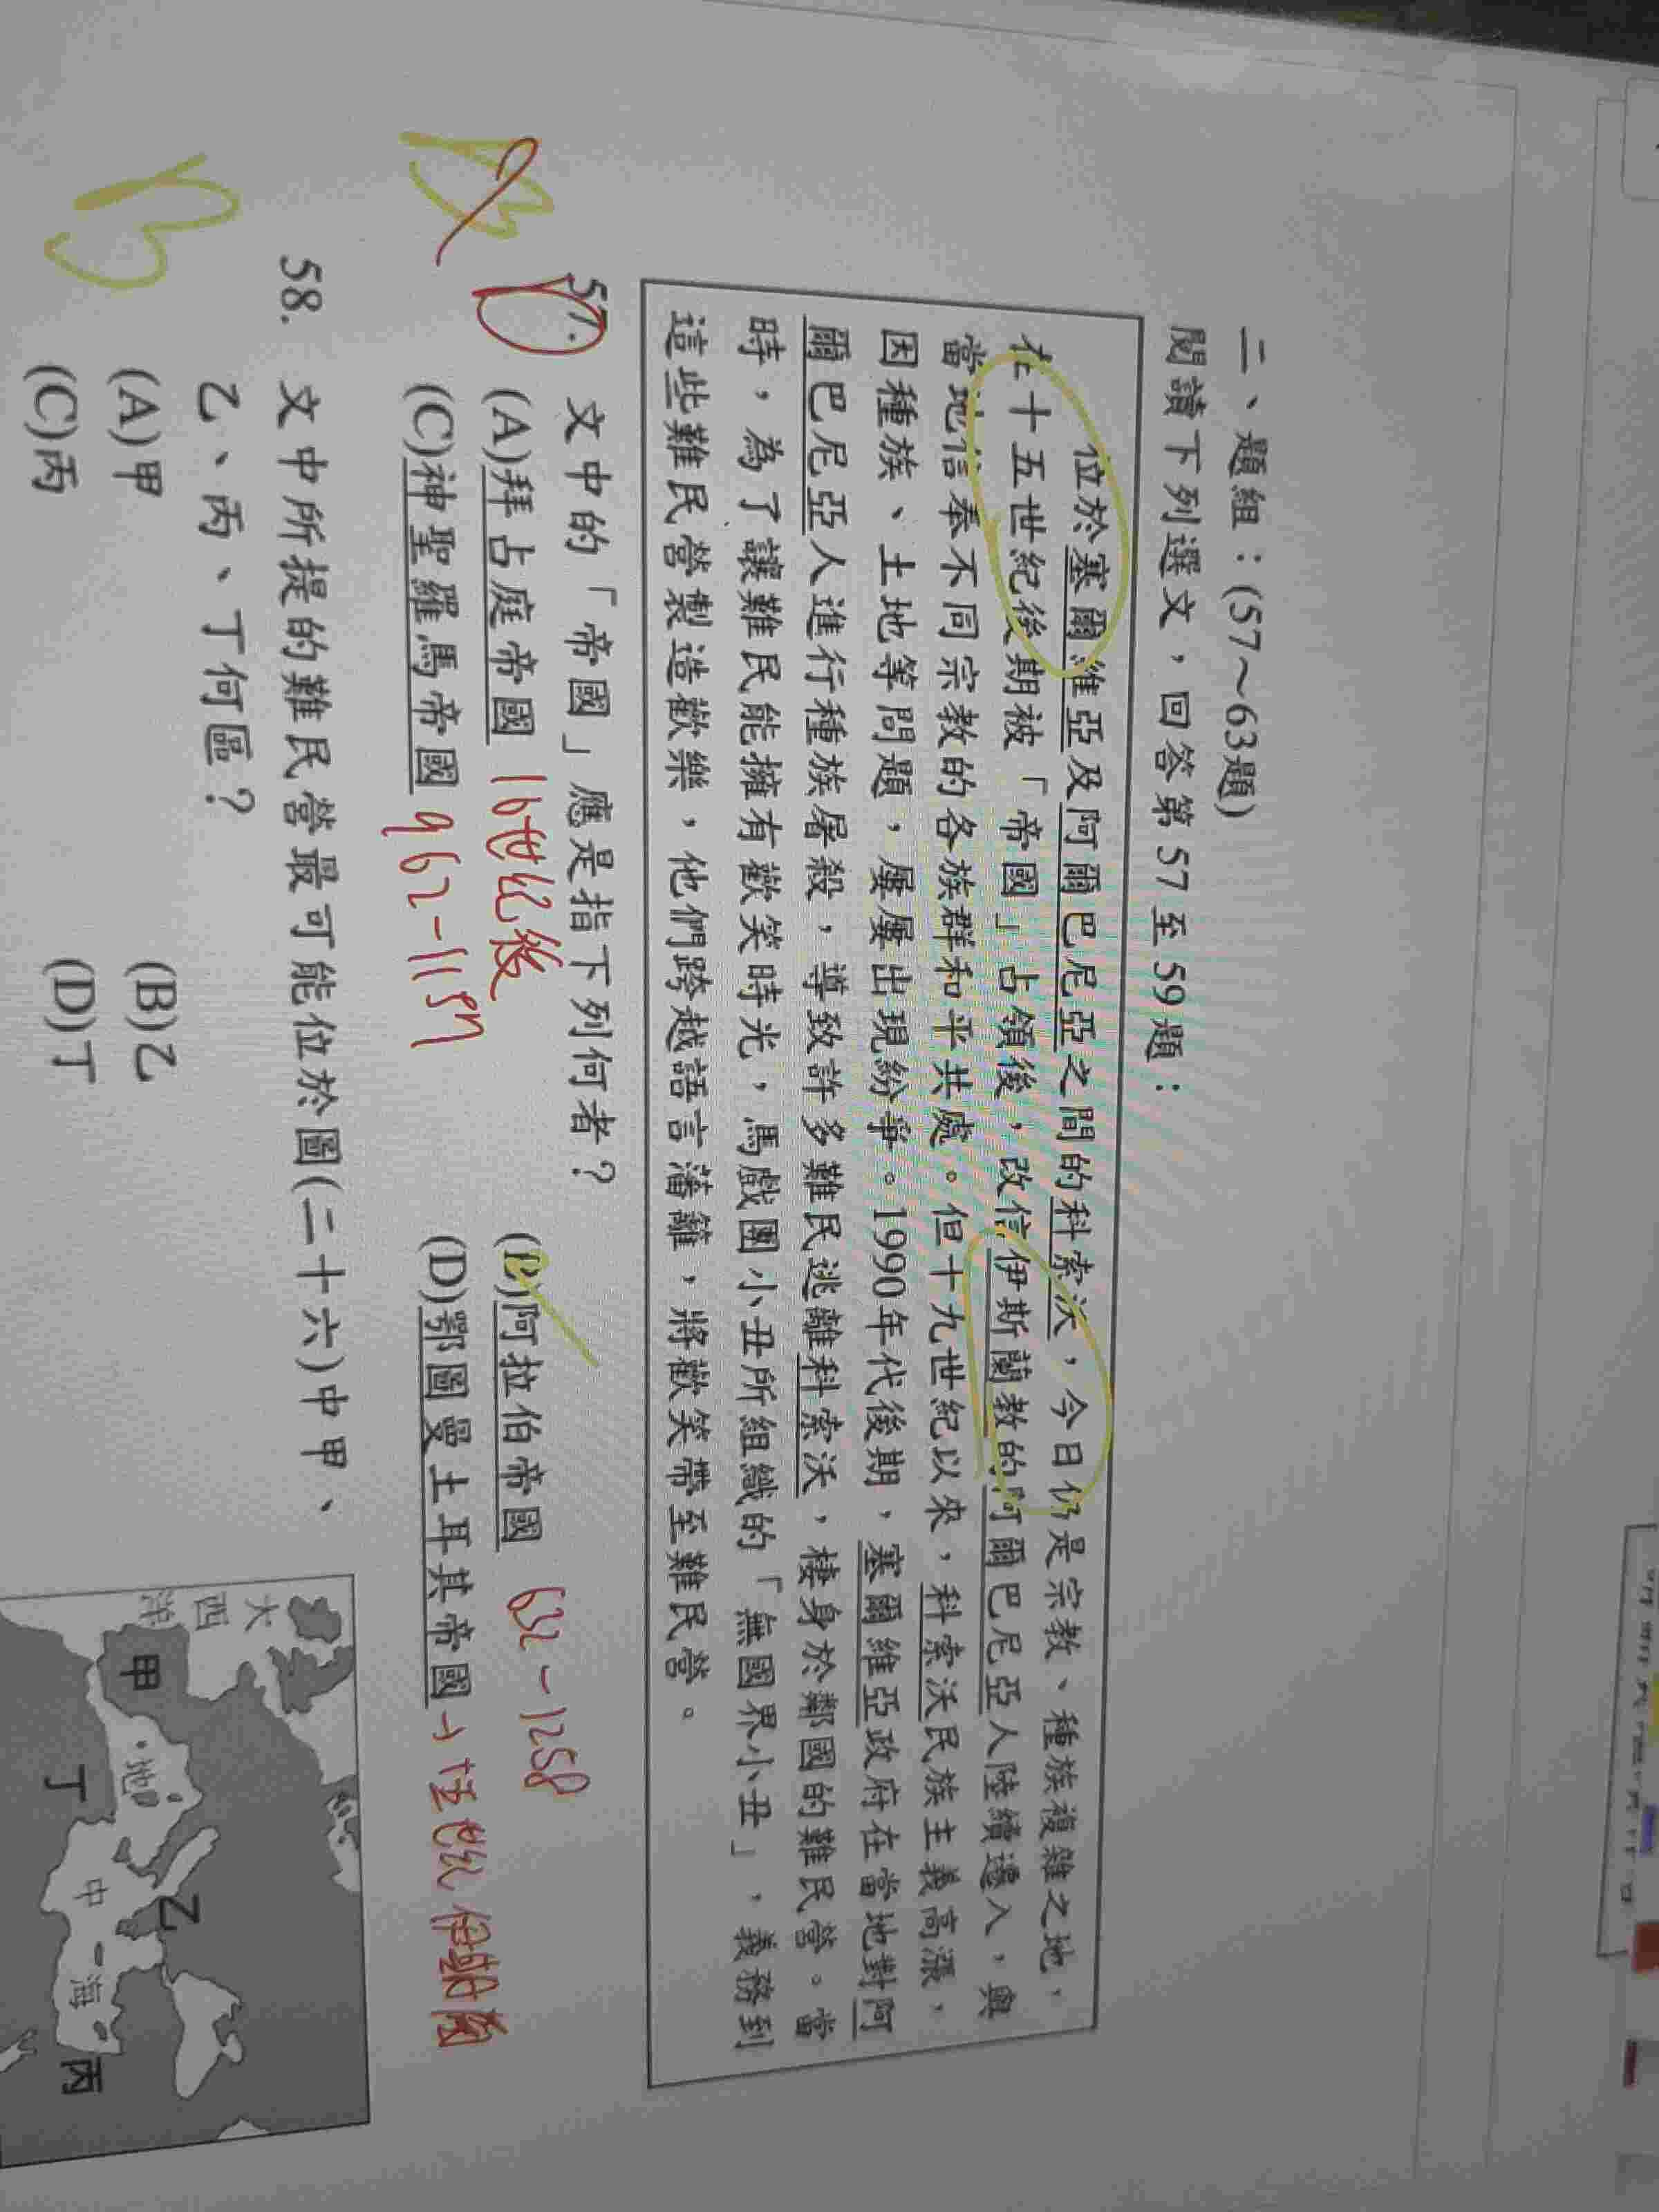 二、題組：(57～63題)
閱讀下列選文，回答第57至59題：
位於塞爾維亞及阿爾巴尼亞之間的科索沃，今日仍是宗教、種族複雜之地，
在十五世紀後期被「帝國」占領後，改信伊斯蘭教的阿爾巴尼亞人陸續遷入，與
當地信奉不同宗教的各族群和平共處。但十九世紀以來，科索沃民族主義高漲，
因種族、土地等問題，屢屢出現紛爭。1990年代後期，塞爾維亞政府在當地對阿
爾巴尼亞人進行種族屠殺，導致許多難民逃離科索沃，棲身於鄰國的難民營。當
時，為了讓難民能擁有歡笑時光，馬戲團小丑所組織的「無國界小丑」，義務到
這些難民營製造歡樂，他們跨越語言藩籬，將歡笑帶至難民營。
57. 文中的「帝國」應是指下列何者？
(A)拜占庭帝國 16世紀後 (B)阿拉伯帝國 632-1258
(C)神聖羅馬帝國 962-1157 (D)鄂圖曼土耳其帝國→
58. 文中所提的難民營最可能位於圖(二十六)中甲、
乙、丙、丁何區？
(A)甲 (B)乙
(C)丙 (D)丁
B
大
西
洋
甲
地
中
海
乙
丁
丙